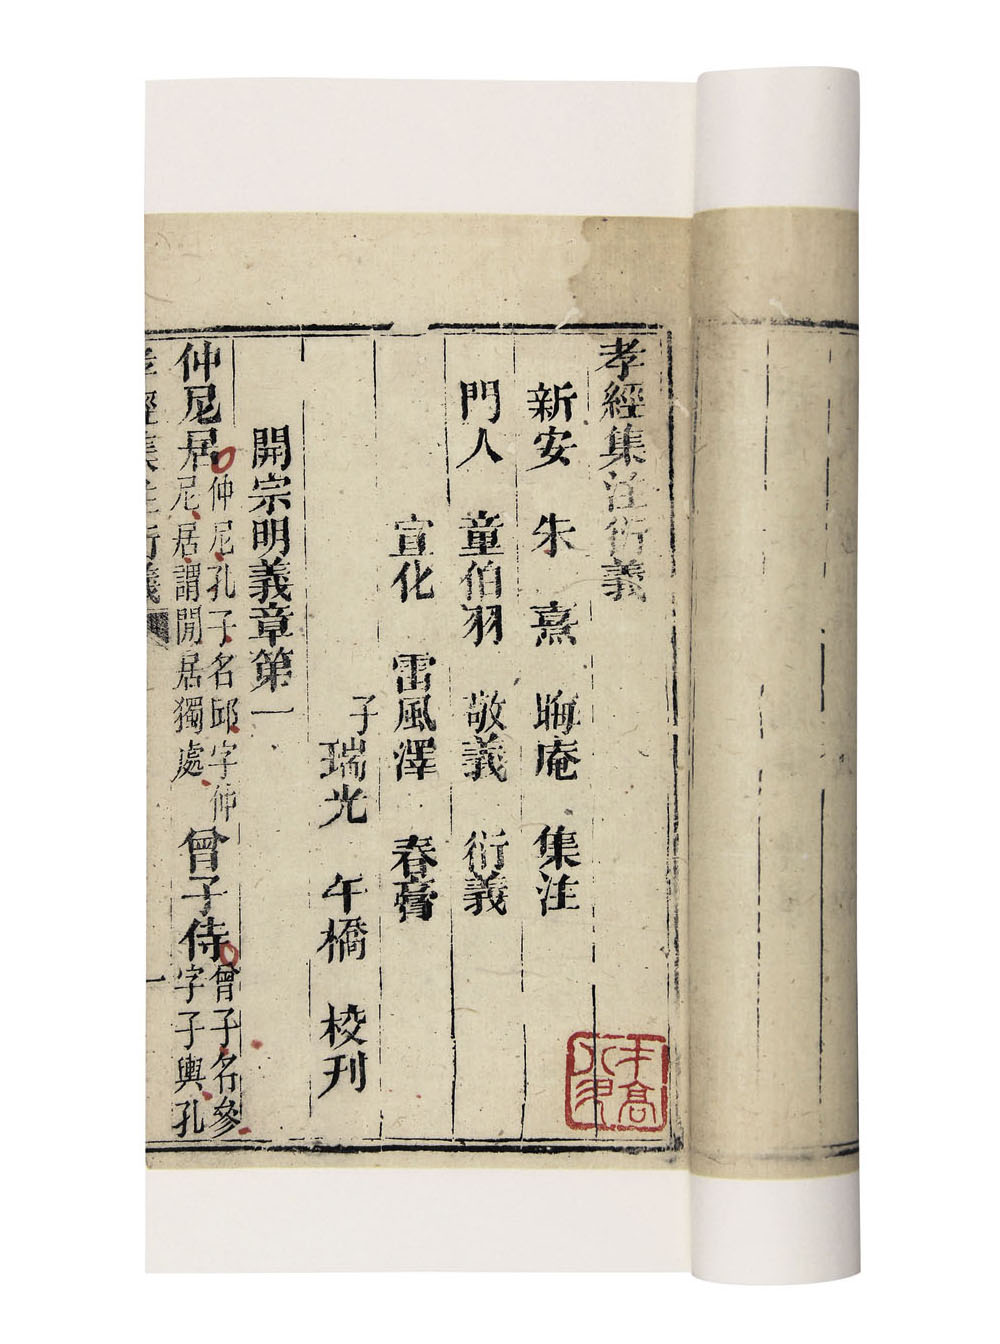 孝經集注衍義
新安 朱 熹 晦庵 集注
門人 童伯羽 敬義 衍義
宣化 雷風澤 春膏
子瑞光 午橋 校刊
開宗明義章第一
仲尼居
仲尼孔子名邱字仲
尼居謂閒居獨處
曾子侍
曾子名參
字子輿孔
孝經集注衍義
一